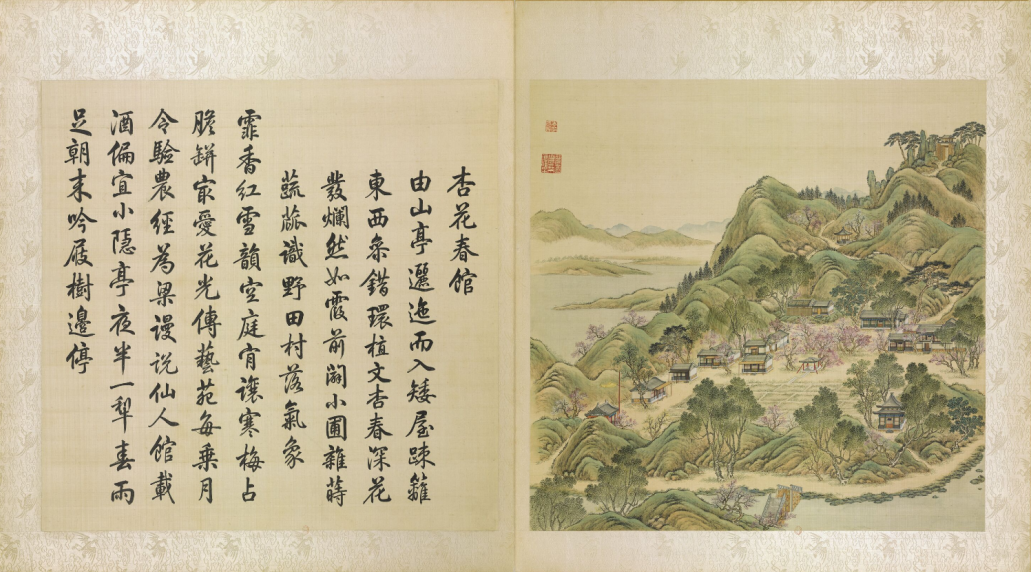 杏花春館
由山亭邐迤而入矮屋踈籬
東西叅錯環植文杏春深花
發爛然如霞前闢小圃雜蒔
蔬蓏識野田村落氣象
霏香紅雪韻空庭肎讓寒梅占
膽缾㝡愛花光傳藝苑每乗月
令驗農經為梁謾説仙人館載
酒偏宜小隱亭夜半一犁春雨
足朝来吟屐樹邊停